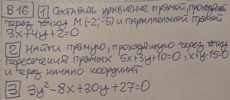 В 16 1 Составить уравнение прямой, проходящей
через точку М (-2;-5) и параллельной прямой
3x+4y+2=0
2 Найти прямую, проходящую через точку
пересечения прямых 5x+3y+10=0, x+y-15=0
и через начало координат.
3 3y²-8x+30y+27=0